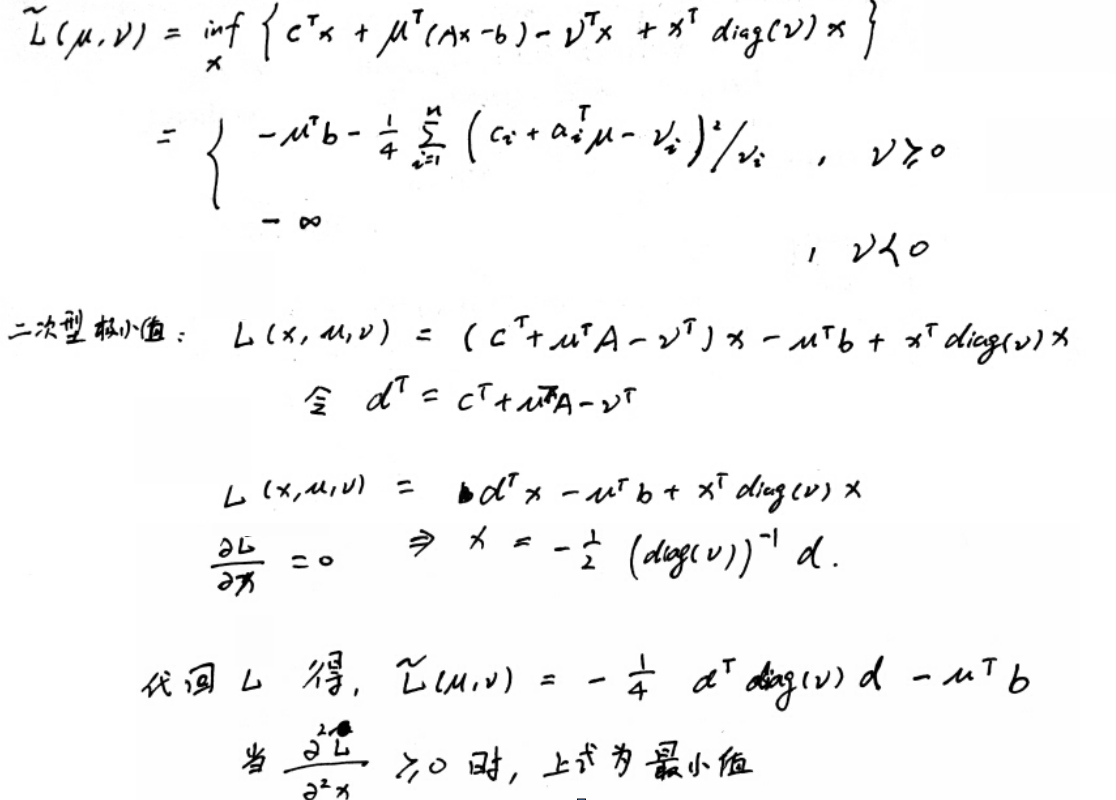 L̃(μ,ν) = inf_x { cᵀx + μᵀ(Ax-b) - νᵀx + xᵀ diag(ν) x }
= { -μᵀb - 1/4 Σ_{i=1}^{n} (c_i + a_iᵀμ - ν_i)²/ν_i , ν ≥ 0
-∞ , ν < 0
二次型极小值: L(x,μ,ν) = (cᵀ+μᵀA-νᵀ)x - μᵀb + xᵀdiag(ν)x
令 dᵀ = cᵀ+μᵀA-νᵀ
L(x,μ,ν) = dᵀx - μᵀb + xᵀdiag(ν)x
∂L/∂x = 0 ⇒ x = -1/2 (diag(ν))⁻¹ d.
代回 L 得, L̃(μ,ν) = - 1/4 dᵀdiag(ν)d - μᵀb
当 ∂²L/∂²x ≥ 0 时, 上式为最小值